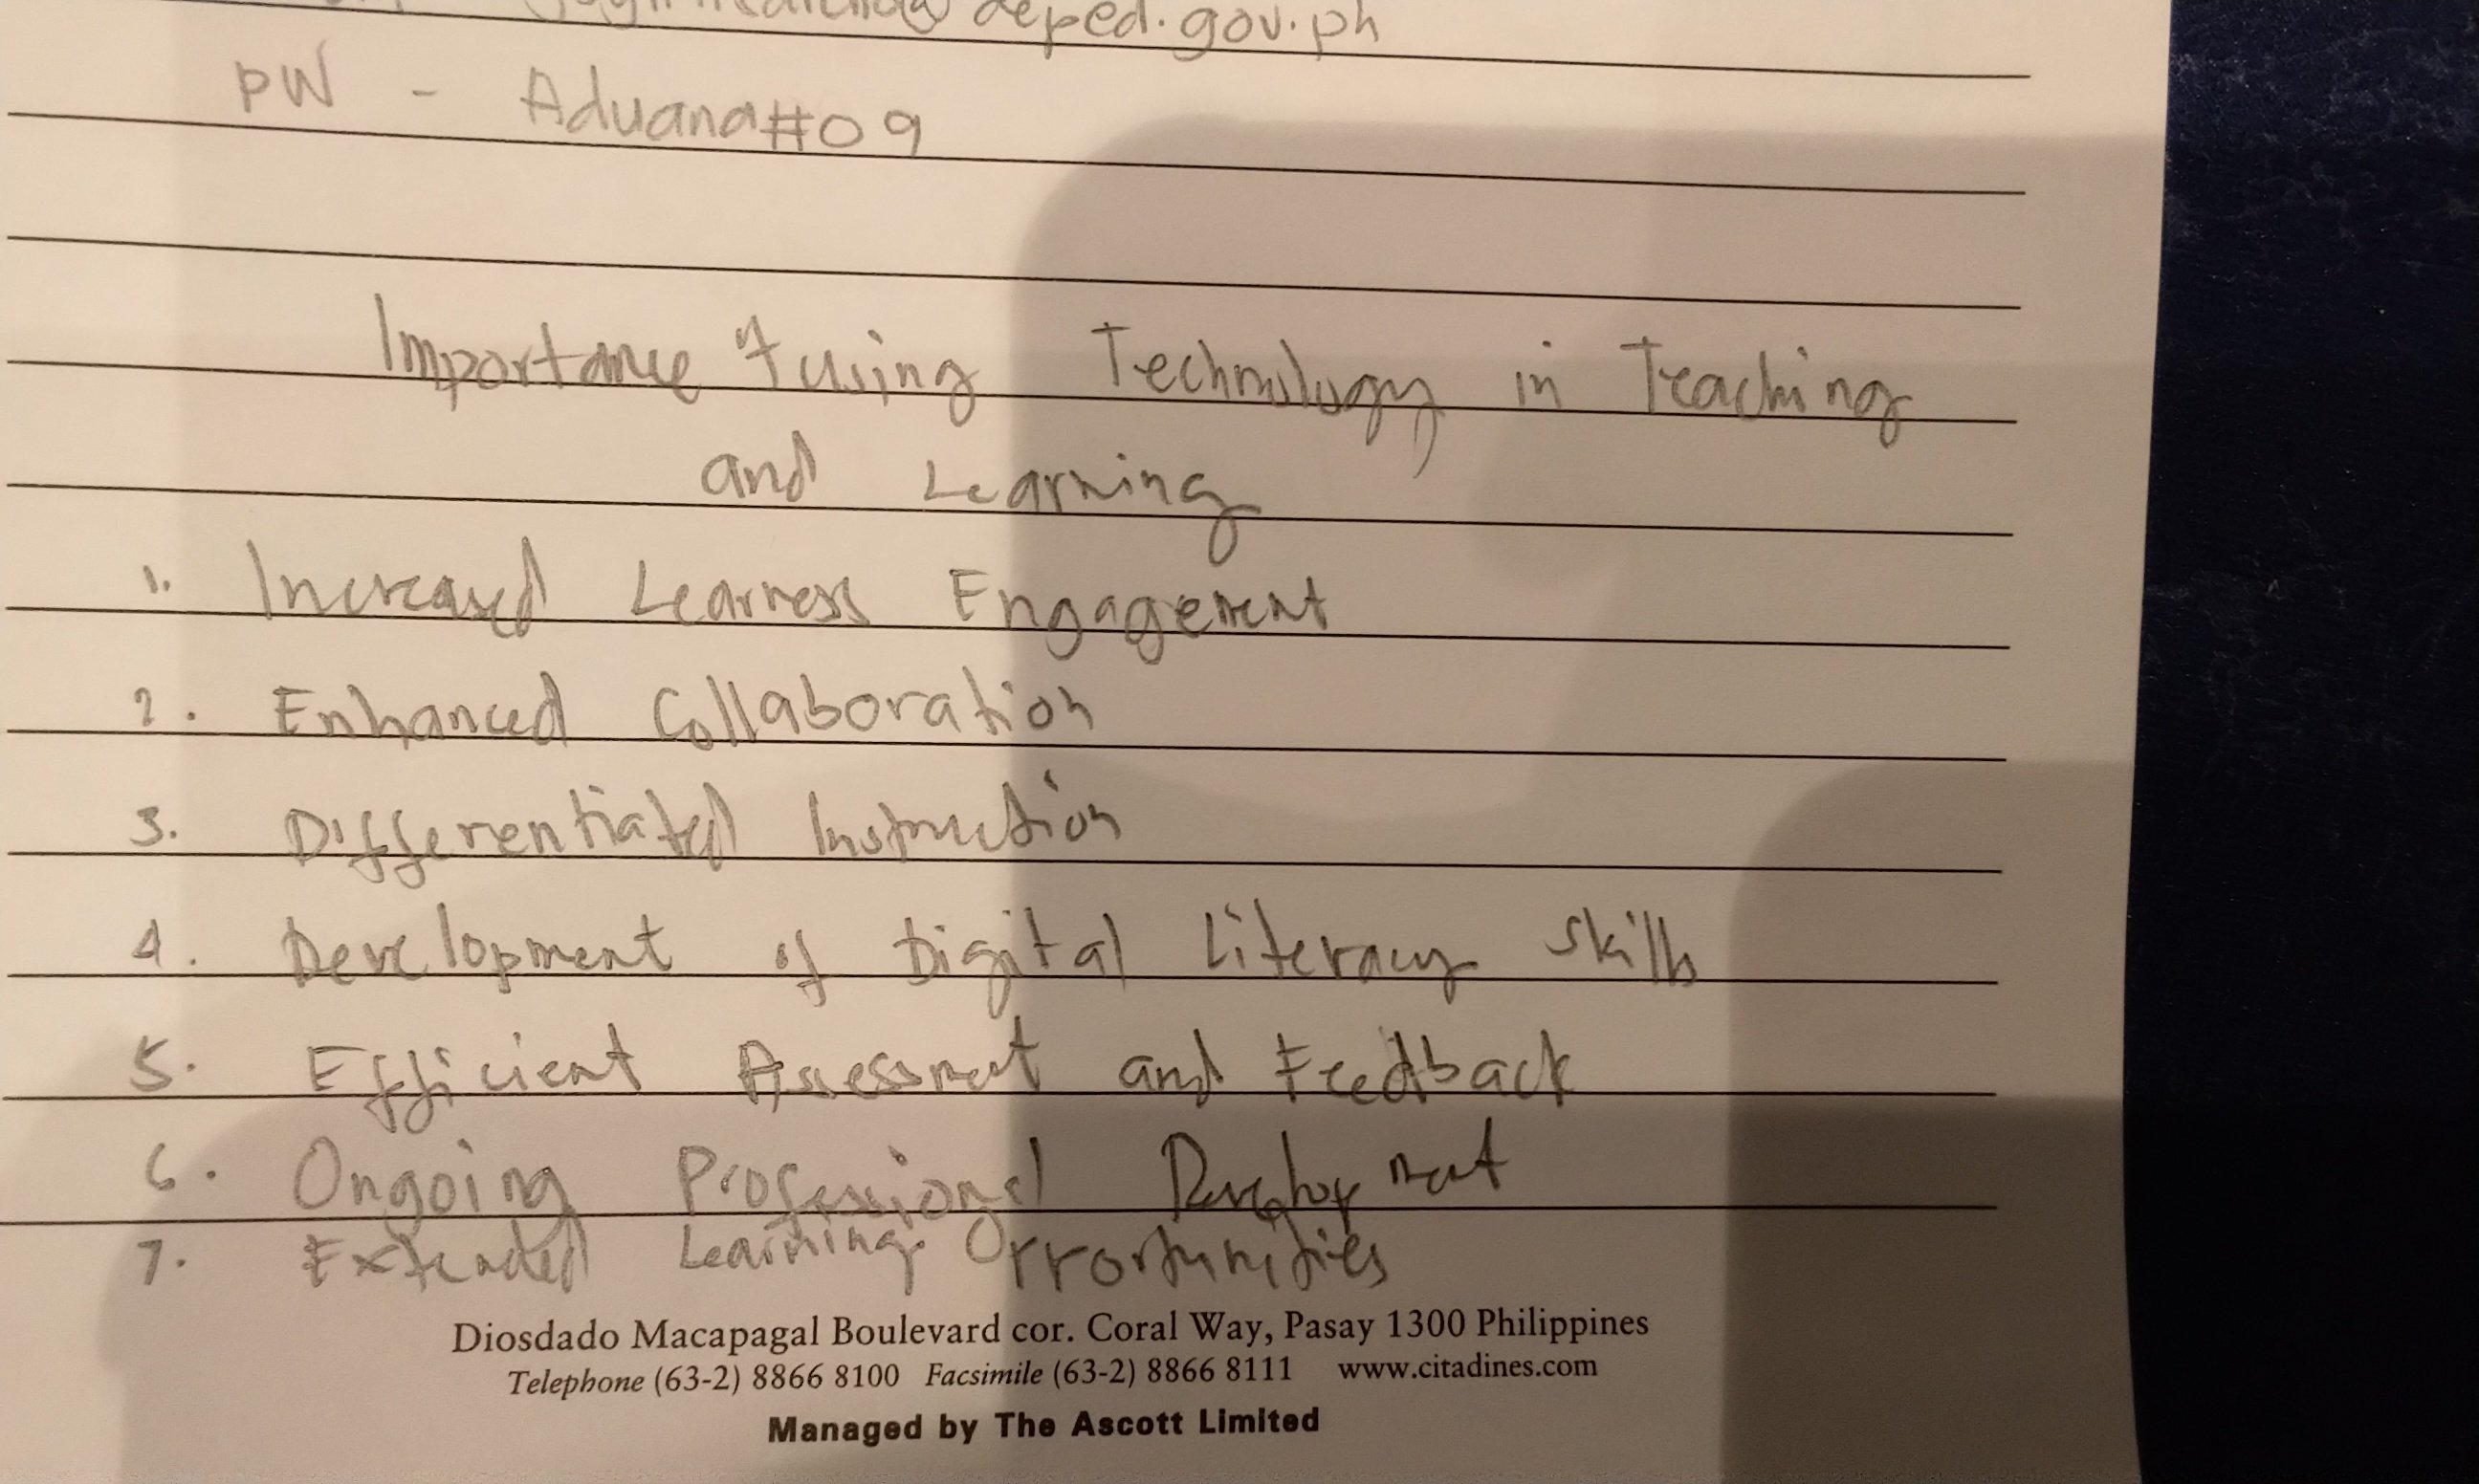 @deped.gov.ph
PW - Aduana#09
Importance of using Technology in Teaching
and Learning
1. Increased Learness Engagement
2. Enhanced Collaboration
3. Differentiated Instruction
4. Development of Digital Literacy Skills
5. Efficient Assessment and Feedback
6. Ongoing Professional Development
7. Extended Learning Opportunities
Diosdado Macapagal Boulevard cor. Coral Way, Pasay 1300 Philippines
Telephone (63-2) 8866 8100 Facsimile (63-2) 8866 8111 www.citadines.com
Managed by The Ascott Limited